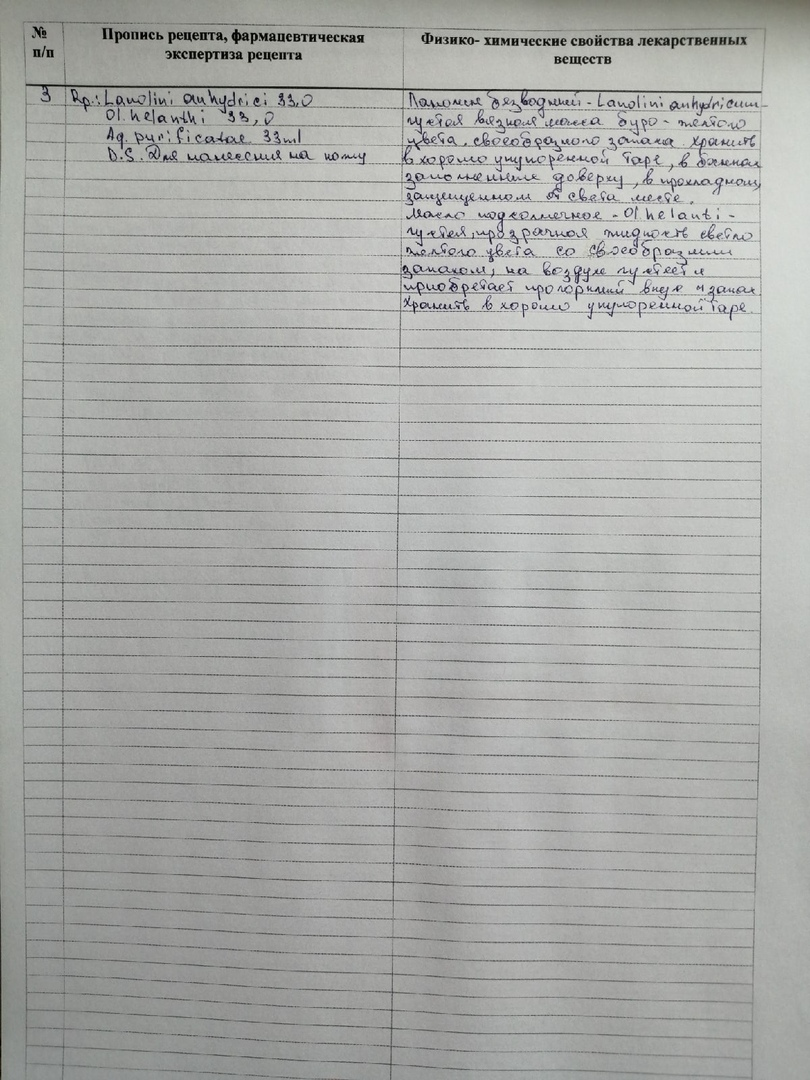 № п/п
Пропись рецепта, фармацевтическая
экспертиза рецепта
Физико- химические свойства лекарственных
веществ
3
Rp.: Lanolini anhydrici 33,0
Ol. helanthi 33,0
Aq. purificatae 33ml
D.S. Для нанесения на кожу
Ланолин безводный - Lanolini anhydricum -
густая вязкая масса буро - желтого
цвета, своеобразного запаха. Хранить
в хорошо укупоренной таре, в
заполненные доверху, в прохладном,
защищенном от света месте.
Масло подсолнечное - Ol. helanti -
густая, прозрачная жидкость светло
желтого цвета со своеобразным
запахом, на воздухе густеет и
приобретает прогорклый вкус и запах
Хранить в хорошо укупоренной таре.